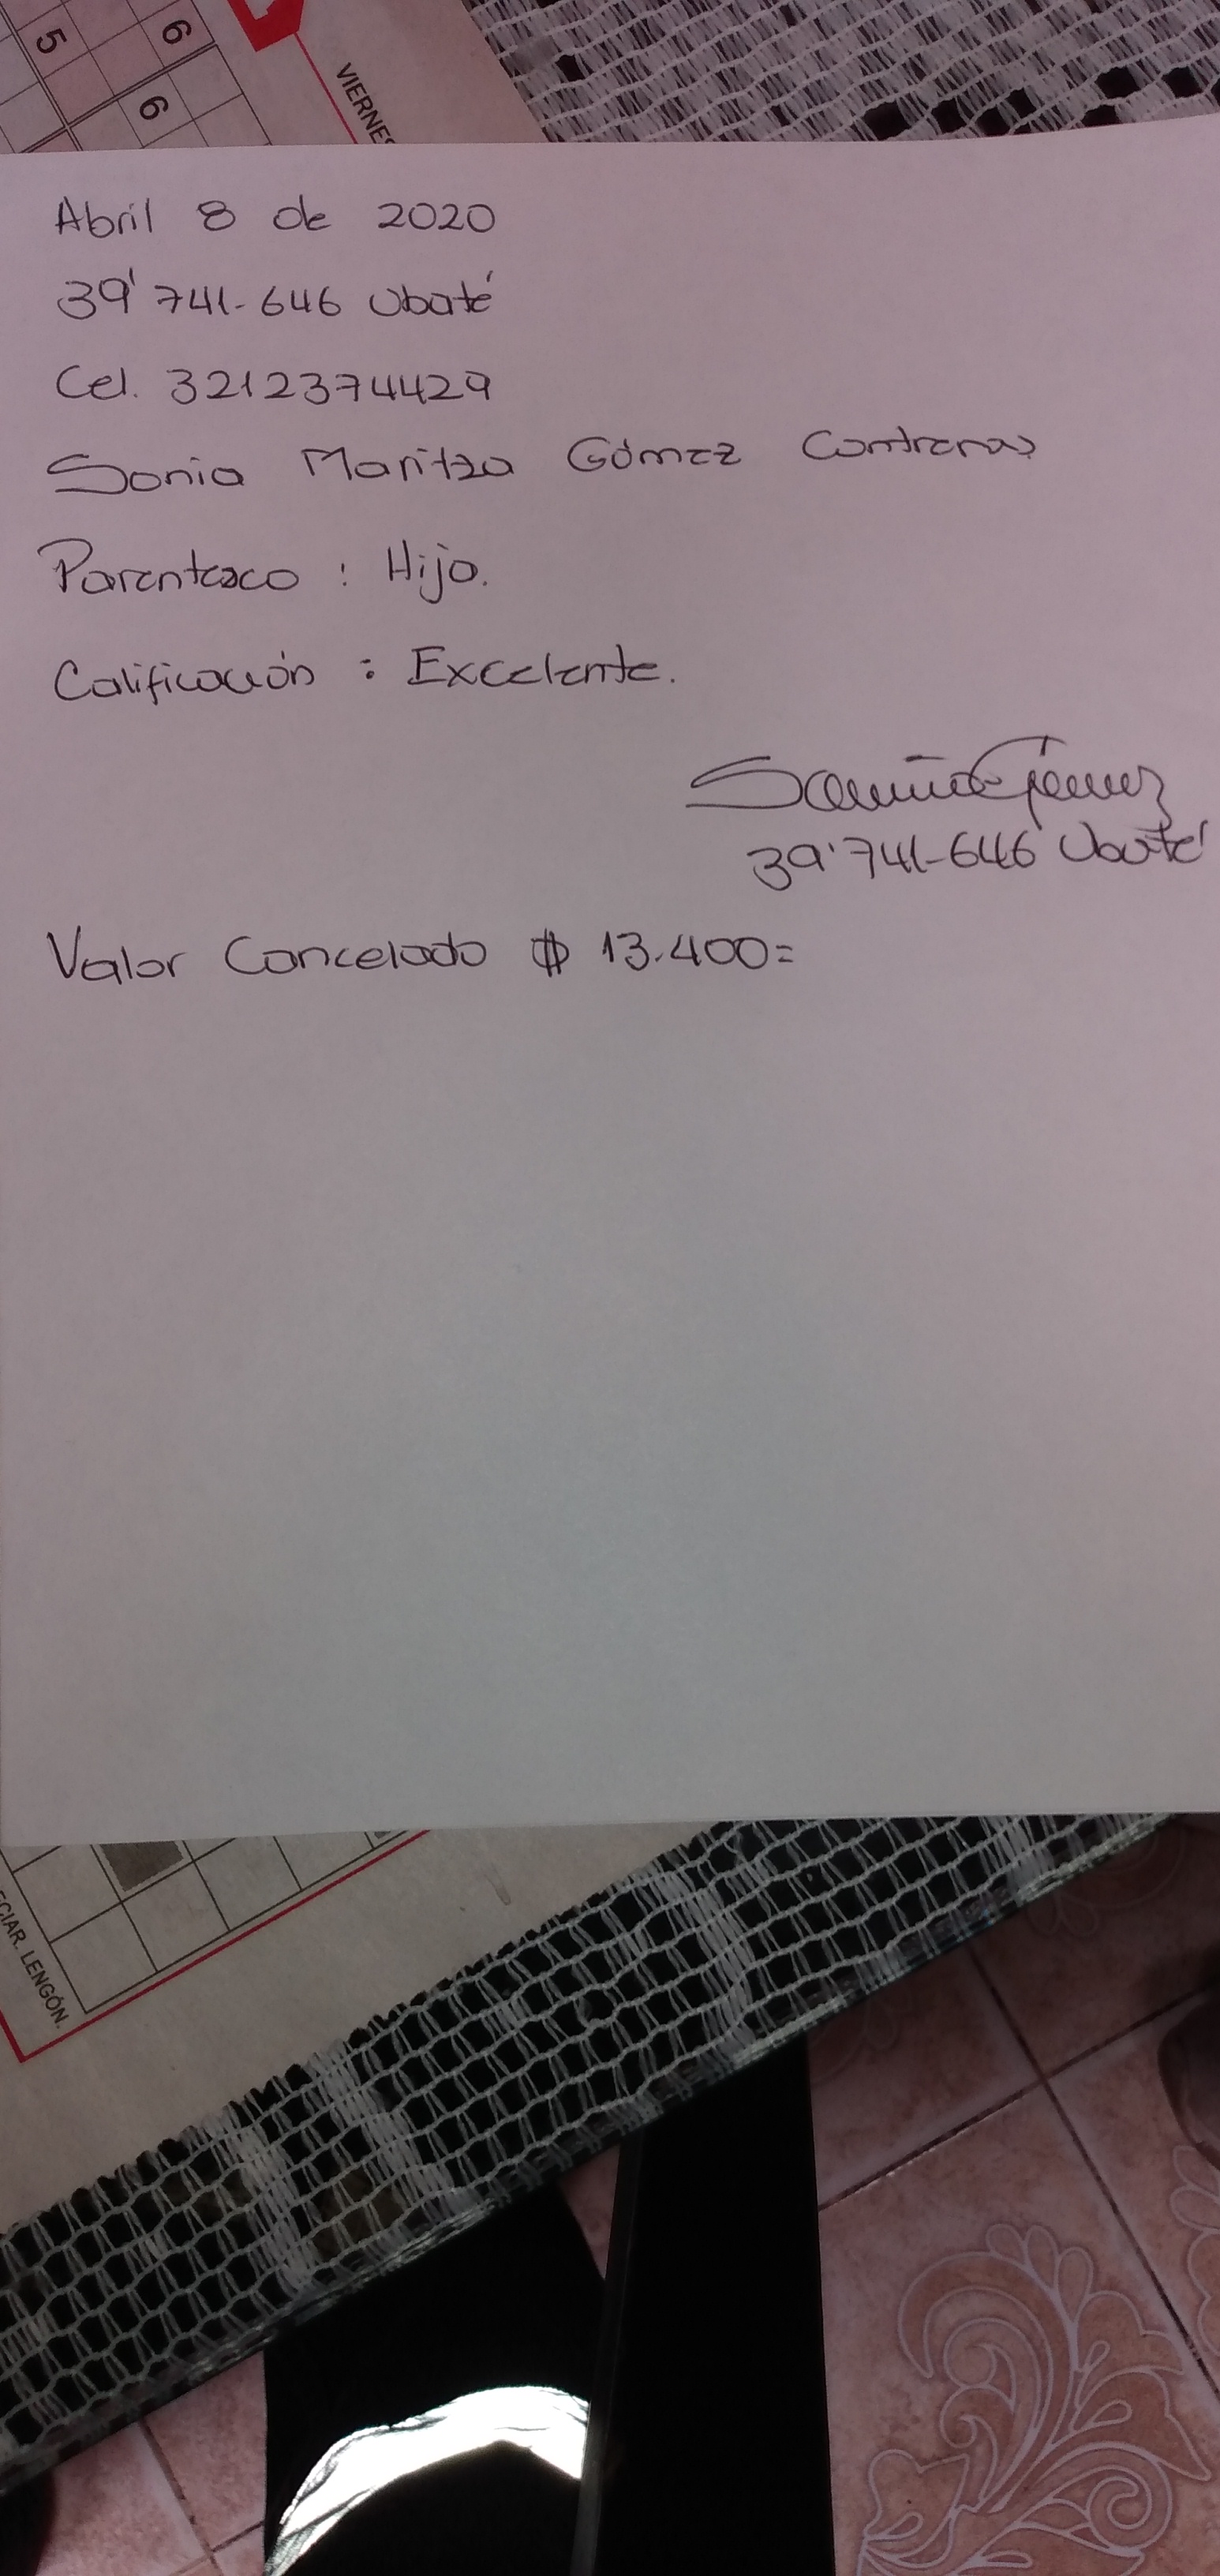 5
6
6
VIERNES
Abril 8 de 2020
39'741-646 Ubaté
Cel. 3212374429
Sonia Maritza Gómez Contreras
Parentesco : Hija.
Calificación : Excelente.
Sonia Gómez
39'741-646 Ubaté
Valor Cancelado $ 13.400=
CIAR. LENGÓN.